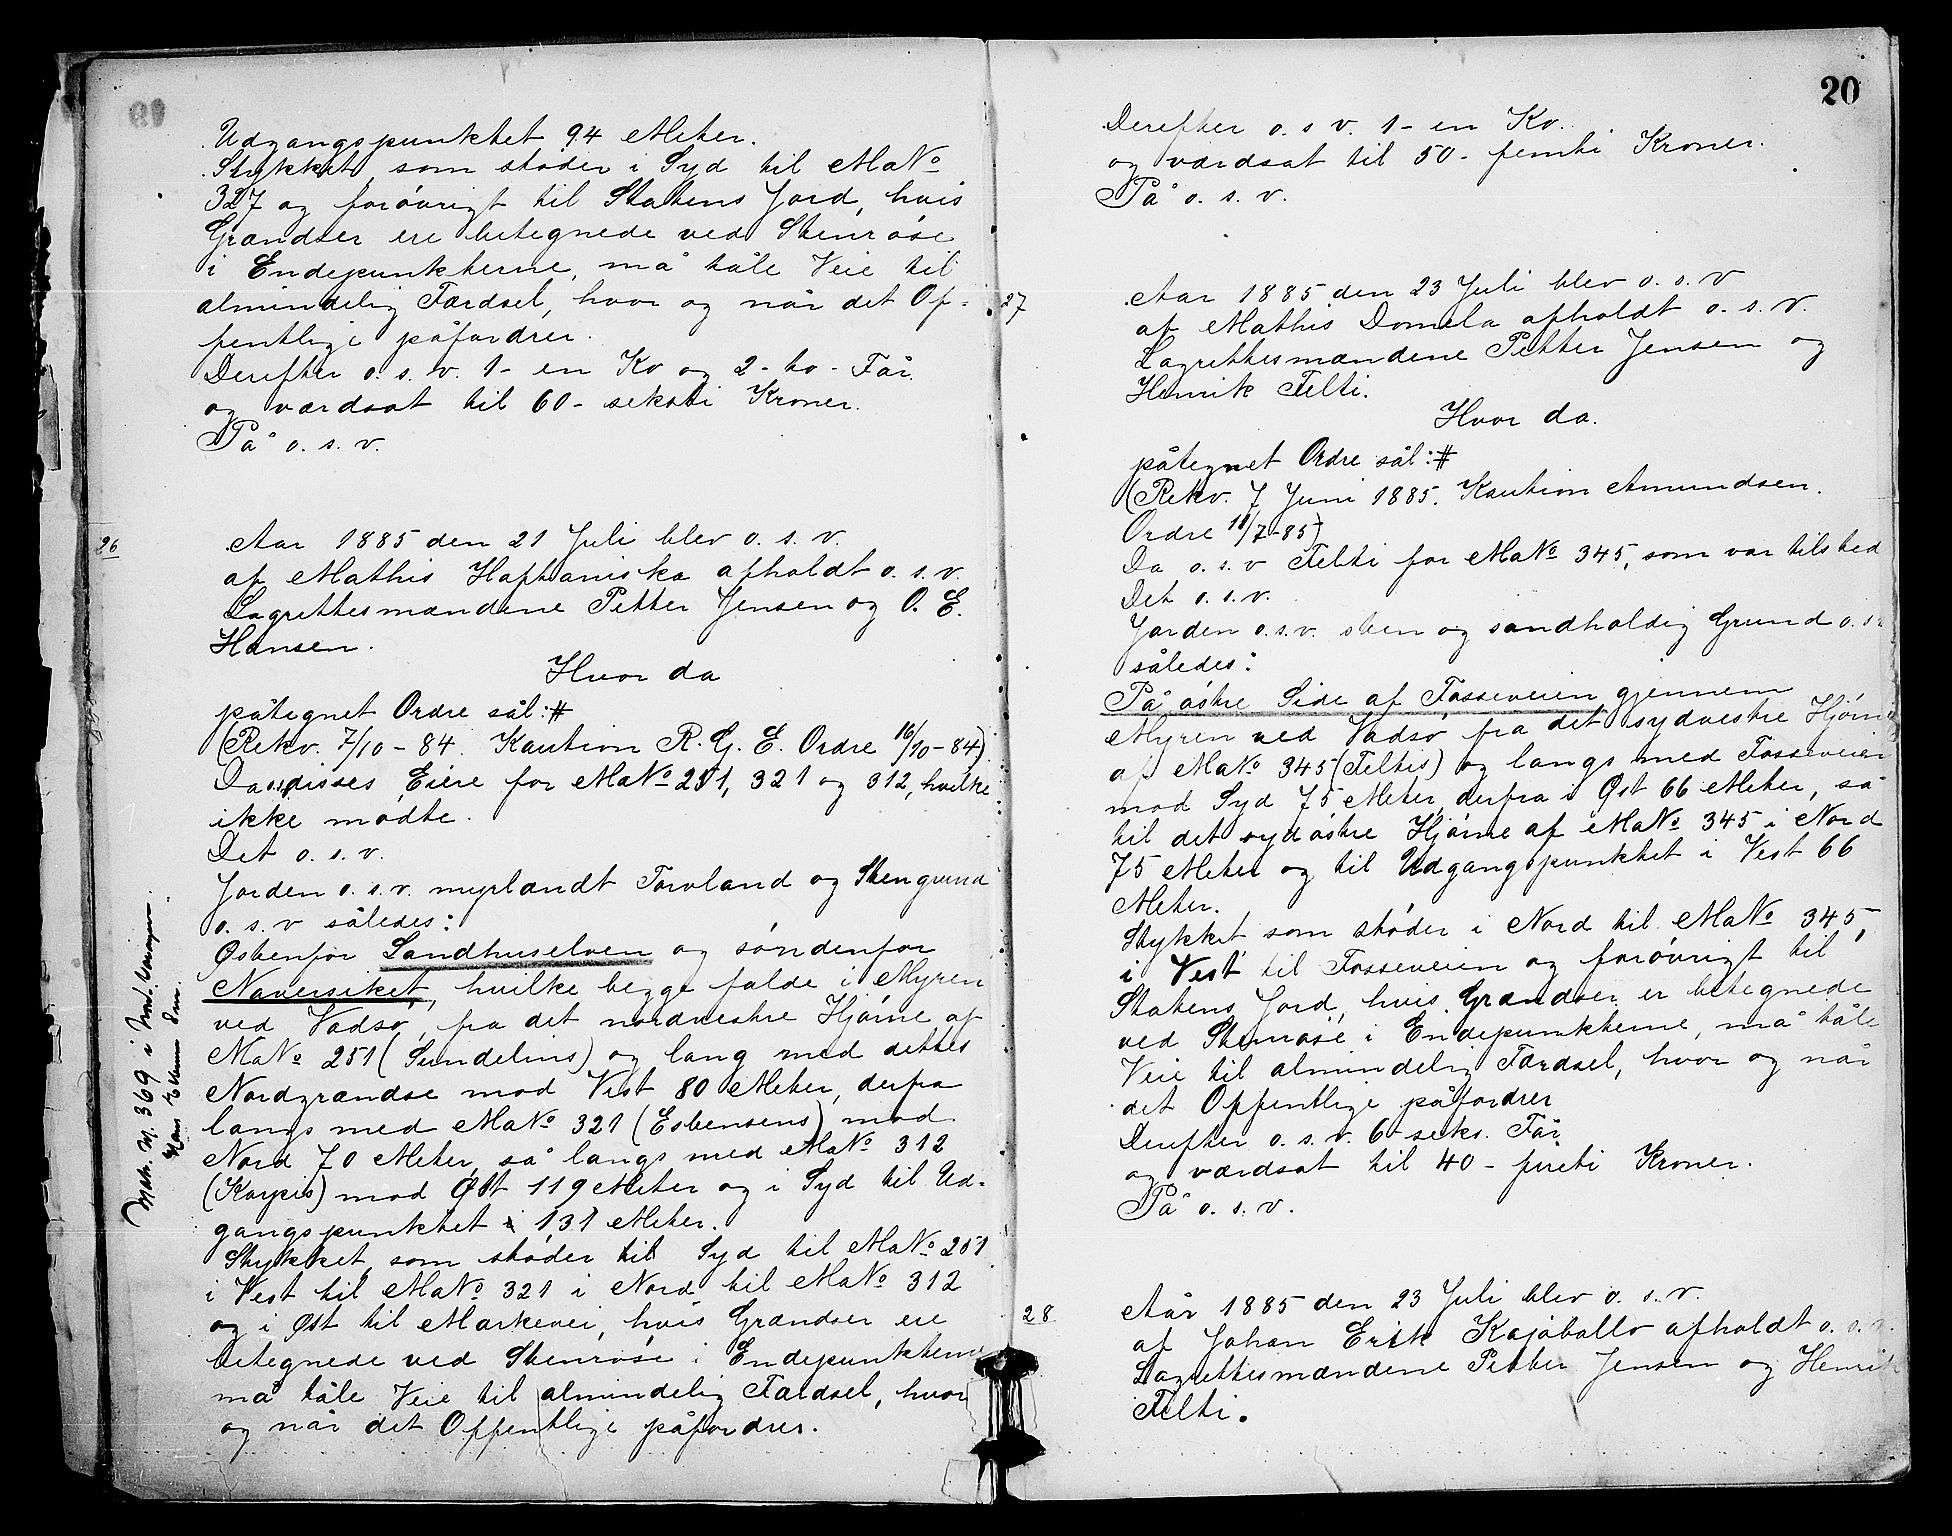 Udgangspunktet 94 Meter.
Stykket, som støder i Syd til Ma№
327 og forøvrigt til Statens Jord, hvis
Grændser ere betegnede ved Stenrøse
i Endepunkterne, må tåle Veie til
almindelig Færdsel, hvor og når det Of-
fentlige påfordrer.
Derefter o. s. v. 1 - en Ko og 2 - to - Får
og værdsat til 60 - seksti Kroner.
På o. s. v.
26
Aar 1885 den 21 Juli blev o. s. v.
af Mathis Haptaniska afholdt o. s. v.
Lagrettesmændene Petter Jensen og O. E.
Hansen.
Hvor da
påtegnet Ordre sål: #
(Rekv. 7/10 - 84. Kaution R. G. E. Ordre 16/10 - 84)
Da disses Eiere for Ma№ 251, 321 og 312, hvilke
ikke mødte.
Det o. s. v.
Jorden o. s. v. myrlændt Torvland og Stengrund
o. s. v således:
Østenfor Sandhuselven og søndenfor
Naversiket, hvilke begge falde i Myren
ved Vadsø, fra det nordvestre Hjørne af
Ma№ 251 (Sundelins) og lang med dettes
Nordgrændse mod Vest 80 Meter, derfra
langs med Ma№ 321 (Esbensens) mod
Nord 70 Meter, så langs med Ma№ 312
(Karpis) mod Øst 119 Meter og i Syd til Ud-
gangspunktet 131 Meter.
Stykket, som støder til Syd til Ma№ 251
i Vest til Ma№ 321 i Nord til Ma№ 312
og i Øst til Markevei, hvis Grændser ere
betegnede ved Stenrøse i Endepunkterne
må tåle Veie til almindelig Færdsel, hvor
og når det Offentlige påfordrer.
Matr. № 369 i
20
Derefter o. s v. 1 - en Ko.
og værdsat til 50 - femti Kroner.
På o. s. v.
27
Aar 1885 den 23 Juli blev o. s. v
af Mathis Domela afholdt o. s. v.
Lagrettesmændene Petter Jensen og
Henrik Felti.
Hvor da.
påtegnet Ordre sål: #
(Rekv. 7 Juni 1885. Kaution Amundsen.
Ordre 18/7-85)
Da o. s. v Felti for Ma№ 345, som var tilsted
Det o. s. v.
Jorden o. s. v. sten og sandholdig Grund o. s v
således:
På østre Side af Fosseveien gjennem
Myren ved Vadsø fra det sydvestre Hjørne
af Ma№ 345 (Feltis) og langs med Fosseveien
mod Syd 75 Meter, derfra i Øst 66 Meter, så
til det sydøstre Hjørne af Ma№ 345 i Nord
75 Meter og til Udgangspunktet i Vest 66
Meter.
Stykket som støder i Nord til Ma№ 345,
i Vest til Fosseveien og forøvrigt til
Statens Jord, hvis Grændser er betegnede
ved Stenrøse i Endepunkterne, må tåle
Veie til almindelig Færdsel, hvor og når
det Offentlige påfordrer
Derefter o. s. v. 6 - seks. Får
og værdsat til 40 - firti Kroner.
På o. s. v.
28
Aår 1885 den 23 Juli blev o. s. v.
af Johan Erik Kajåballo afholdt o. s. v.
Lagrettesmændene Petter Jensen og Henrik
Felti.